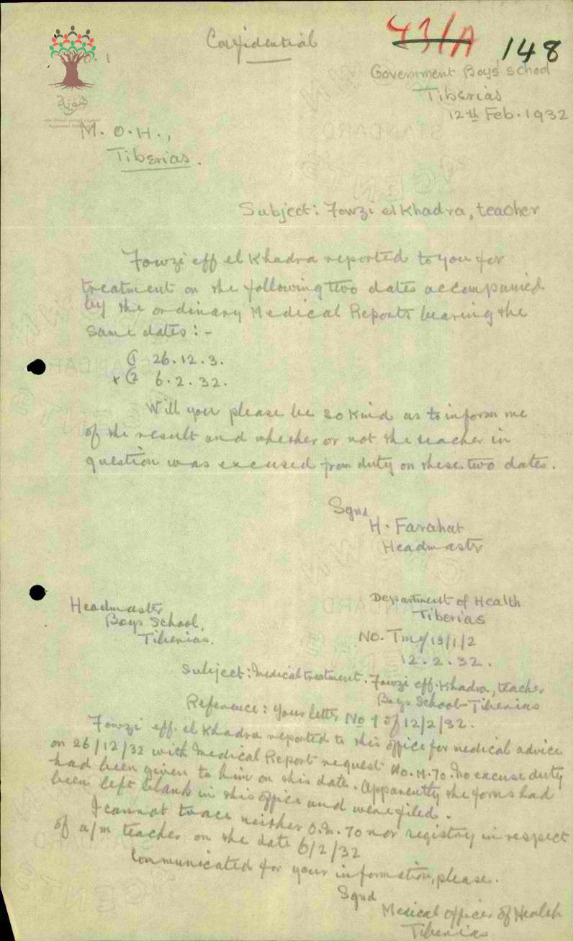 Confidential
43/A 148
No. 1
Government Boys' School
Tiberias
12th Feb. 1932
هوية
M. O. H.,
Tiberias.
Subject: Fowzi el Khadra, teacher
Fowzi eff el Khadra reported to you for
treatment on the following two dates accompanied
by the ordinary Medical Reports bearing the
same dates:-
(1) 26.12.3.
+ (2) 6.2.32.
Will you please be so kind as to inform me
of the result and whether or not the teacher in
question was excused from duty on these two dates.
Sgnd
H. Farahat
Headmaster
Headmaster
Boys School,
Tiberias.
Department of Health
Tiberias
No. Tmy/13/1/2
12.2.32.
Subject: Medical treatment. Fowzi eff. Khadra, teacher
Boys School-Tiberias
Reference: Your letter No 1 of 12/2/32.
Fowzi eff. el Khadra reported to this office for medical advice
on 26/12/32 with Medical Report request No. M. 70. No excuse duty
had been given to him on this date. Apparently the forms had
been left blank in this office and were filed.
I cannot trace neither O.M. 70 nor registry in respect
of a/m teacher on the date 6/2/32
Communicated for your information, please.
Sgnd
Medical Officer of Health
Tiberias